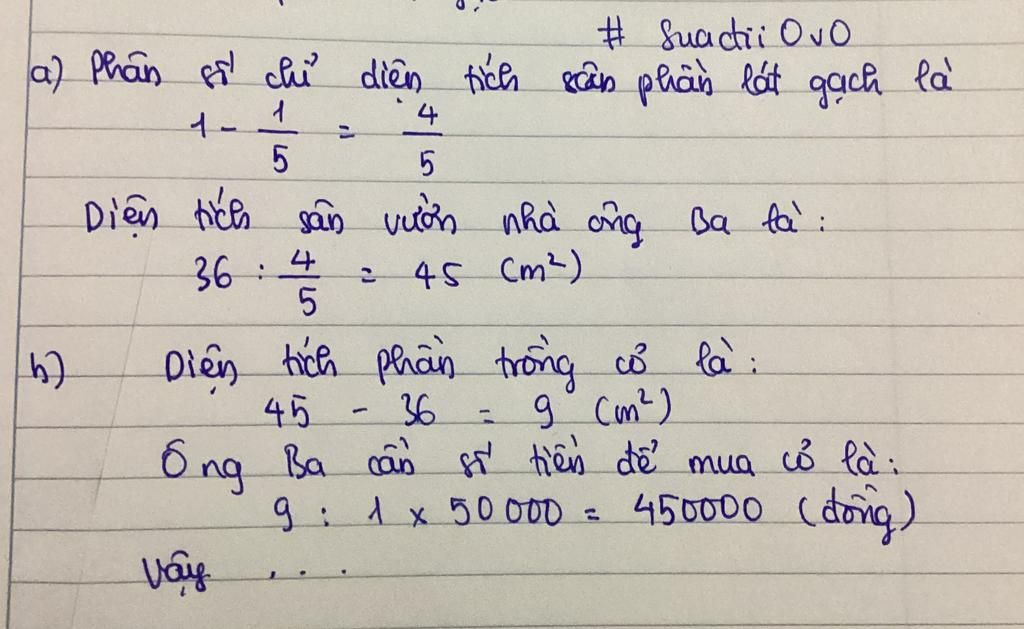 # Suactii OvO
a) Phân số chỉ diện tích sân phần lát gạch là
1 - 1/5 = 4/5
Diện tích sân vườn nhà ông Ba là:
36 : 4/5 = 45 (m²)
b) Diện tích phần trồng cỏ là:
45 - 36 = 9 (m²)
Ông Ba cần số tiền để mua cỏ là:
9 : 1 × 50 000 = 450000 (đồng)
Vậy ...